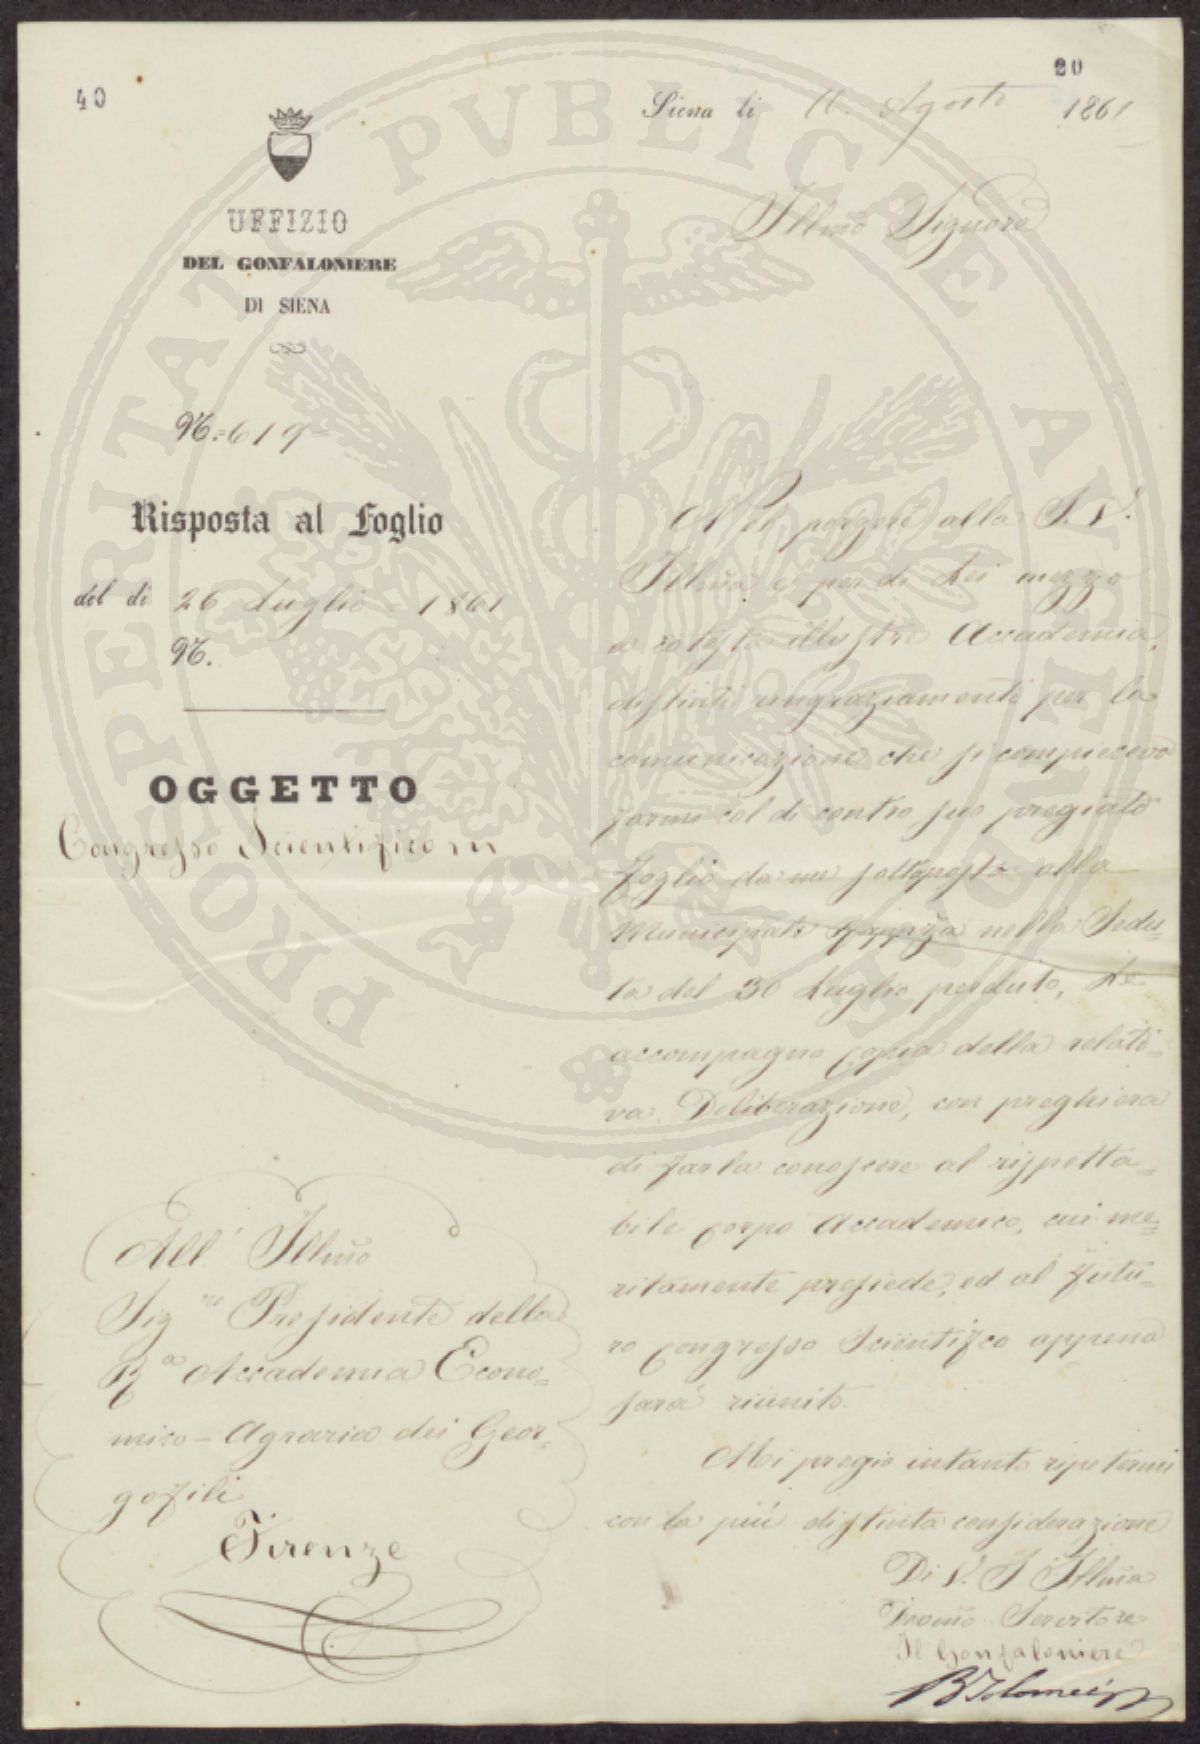 40
20
Siena li 11. Agosto 1861
UFFIZIO
DEL GONFALONIERE
DI SIENA
N.=619=
Risposta al Foglio
del di 26 Luglio = 1861
N.
OGGETTO
Congresso Scientifico
Illmo Signore
porgere alla S. V.
Illma e per di Lei mezzo
a cotesta illustre Accademia,
distinti ringraziamenti per la
comunicazione che si compiaceva
farmi col di contro suo pregiato
foglio da me sottoposto alla
Municipale nella Sedu=
ta del 30 Luglio perduto, Le
accompagno copia della relati=
va Deliberazione, con preghiera
di farla conoscere al rispetta=
bile corpo Accademico, cui me=
ritamente presiede, ed al futu=
ro Congresso Scientifico appena
sarà riunito.
Mi pregio intanto ripetermi
con la più distinta considerazione
Di V. S. Illma
Devmo Servitore
Il Gonfaloniere
B Tolomei
All' Illmo
Sig.re Presidente della
R.a Accademia Econo=
mico-Agraria dei Geor=
gofili
Firenze
PROSPERITATI PVBLICAE AVGENDAE